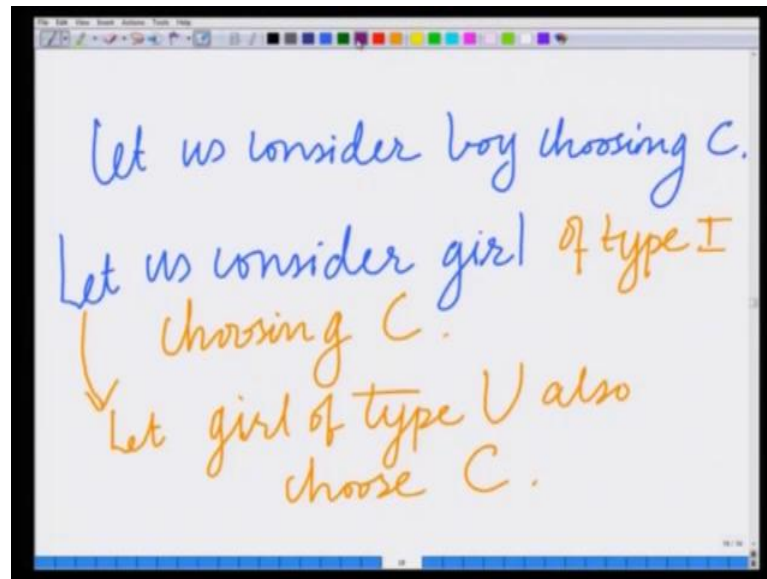 File Edit View Insert Actions Tools Help
Let us consider boy choosing C.
Let us consider girl of type I
choosing C.
Let girl of type U also
choose C.